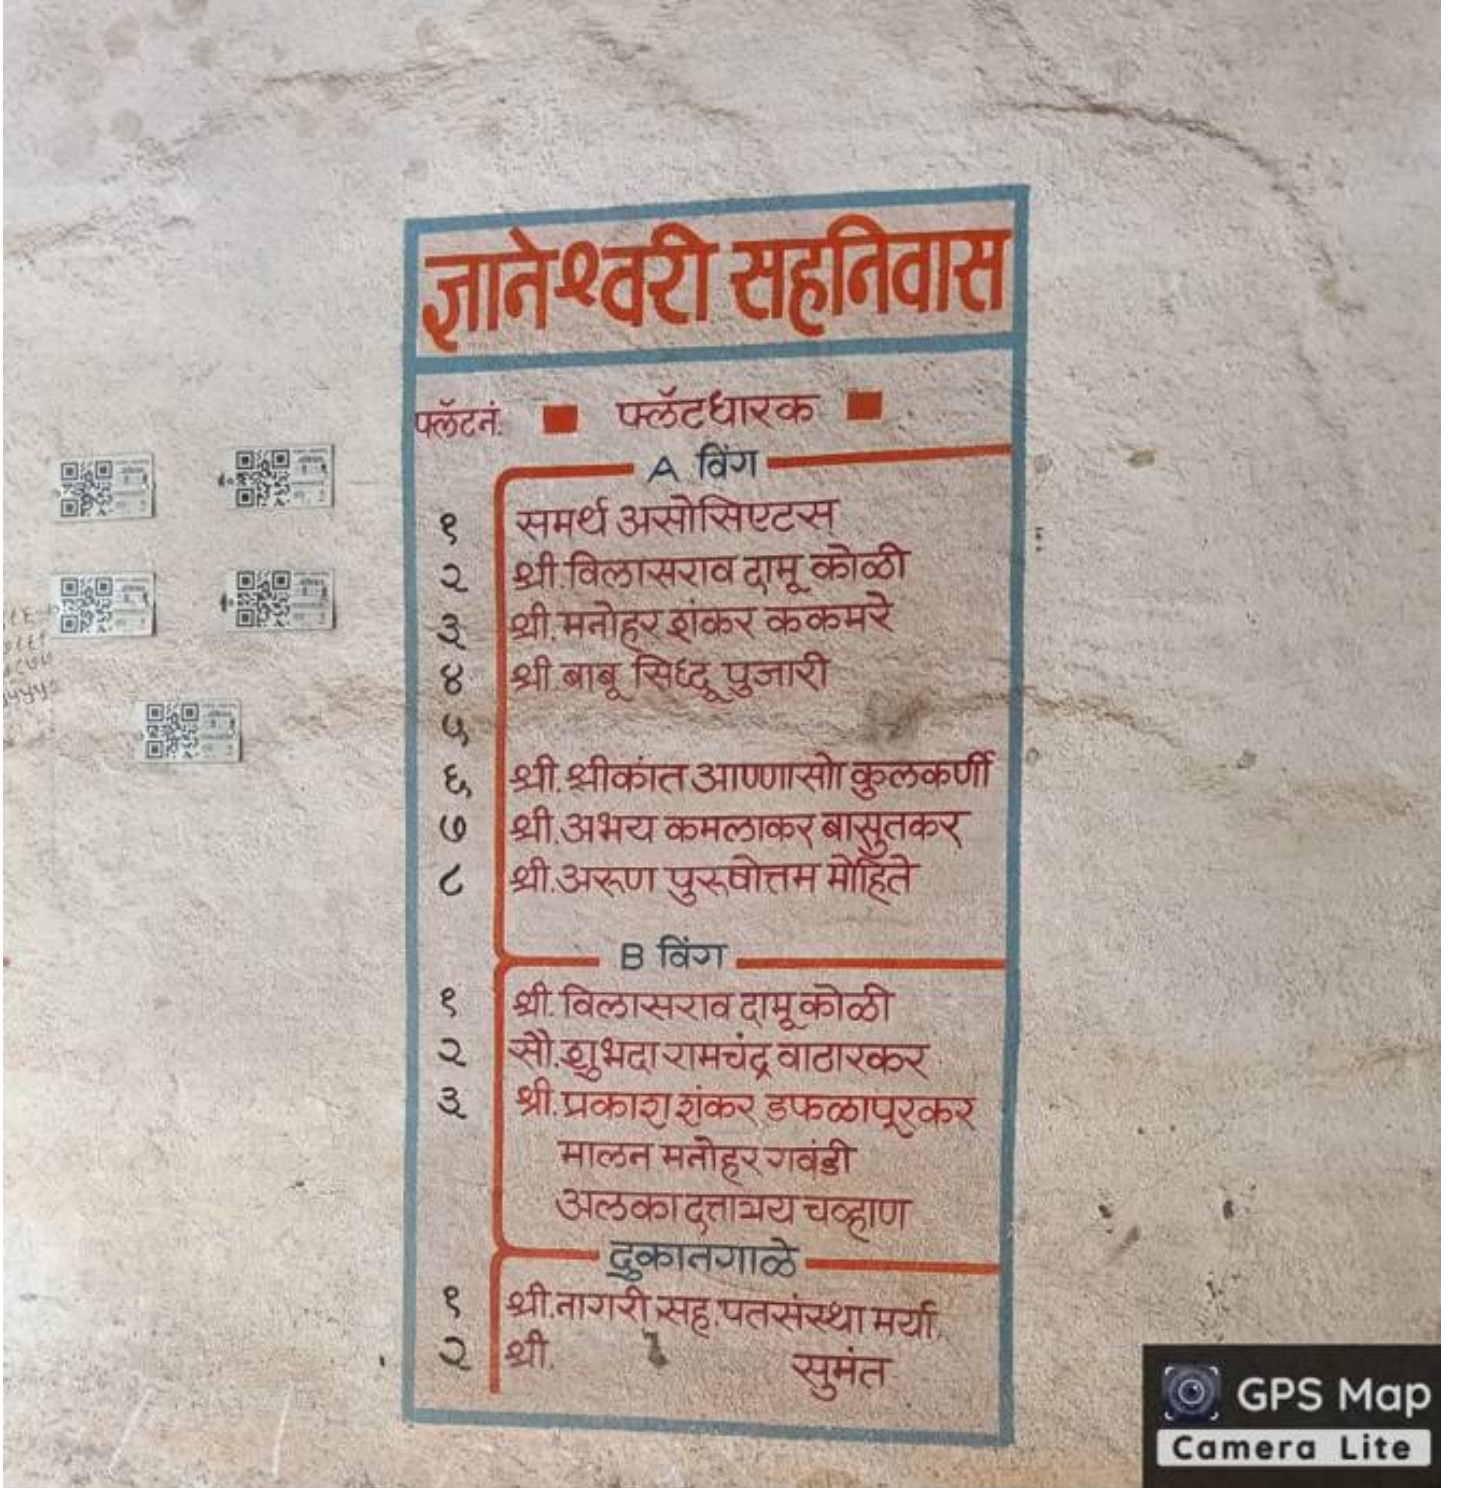 ज्ञानेश्वरी सहनिवास
फ्लॅटनं. फ्लॅटधारक
A विंग
१ समर्थ असोसिएटस्
२ श्री.विलासराव दामू कोळी
३ श्री.मनोहर शंकर ककमरे
४ श्री.बाबू सिध्दू पुजारी
५
६ श्री.श्रीकांत आण्णासाो कुलकर्णी
७ श्री.अभय कमलाकर बासुतकर
८ श्री.अरूण पुरूषोत्तम मोहिते
B विंग
१ श्री.विलासराव दामू कोळी
२ सौ.शुभदा रामचंद्र वाठारकर
३ श्री.प्रकाश शंकर डफळापूरकर
मालन मनोहर गवंडी
अलका दत्तात्रय चव्हाण
दुकानगाळे
१ श्री.नागरी सह.पतसंस्था मर्या.
२ श्री. सुमंत
GPS Map
Camera Lite